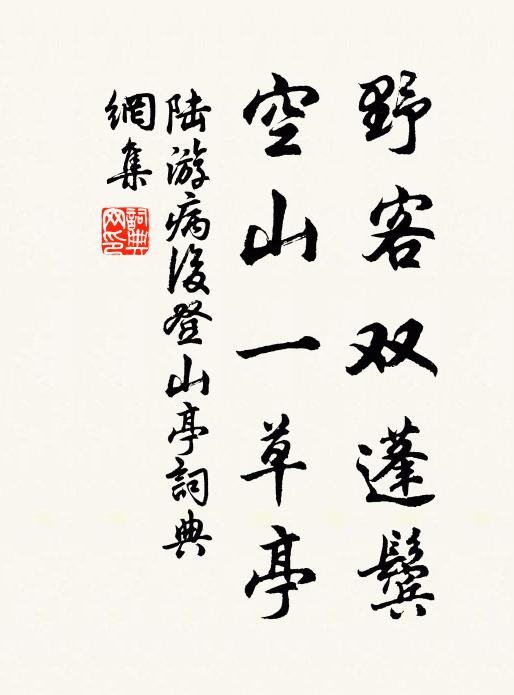 野客双蓬鬓
空山一草亭
陆游病後登山亭詞典
網集
詞典网印